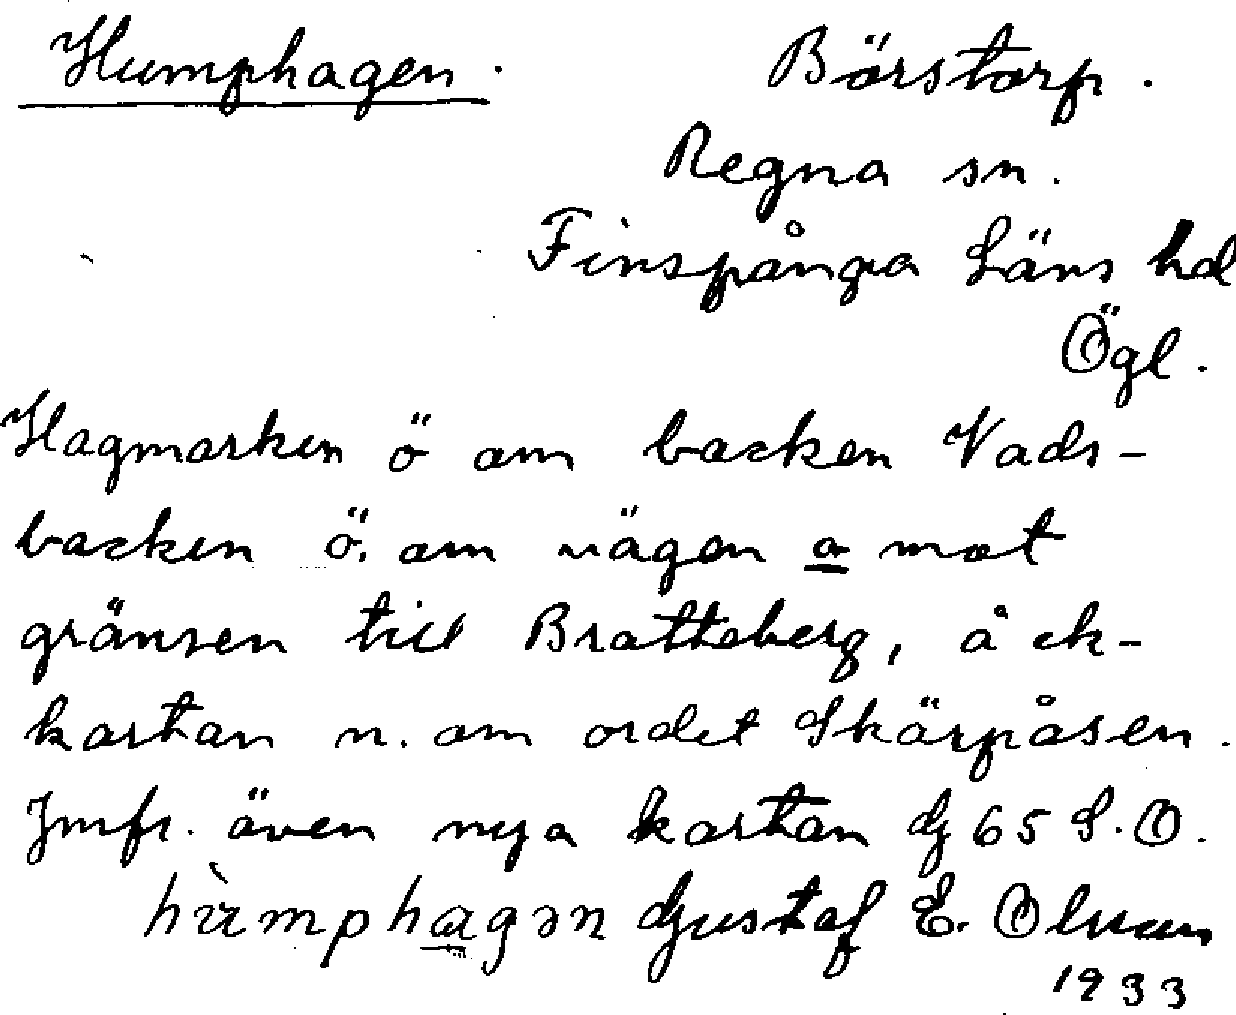 Humphagen. Börstorp.
Regna sn.
Finspånga Läns hd
Ögl.
Hagmarken ö om backen Vads-
backen ö. om vägen a mot
gränsen till Bratteberg, å ek-
kartan n. om ordet Skärpåsen.
Jmfr. även nya kartan G 65 S.O.
hùmphagən Gustaf E. Olsson
1933